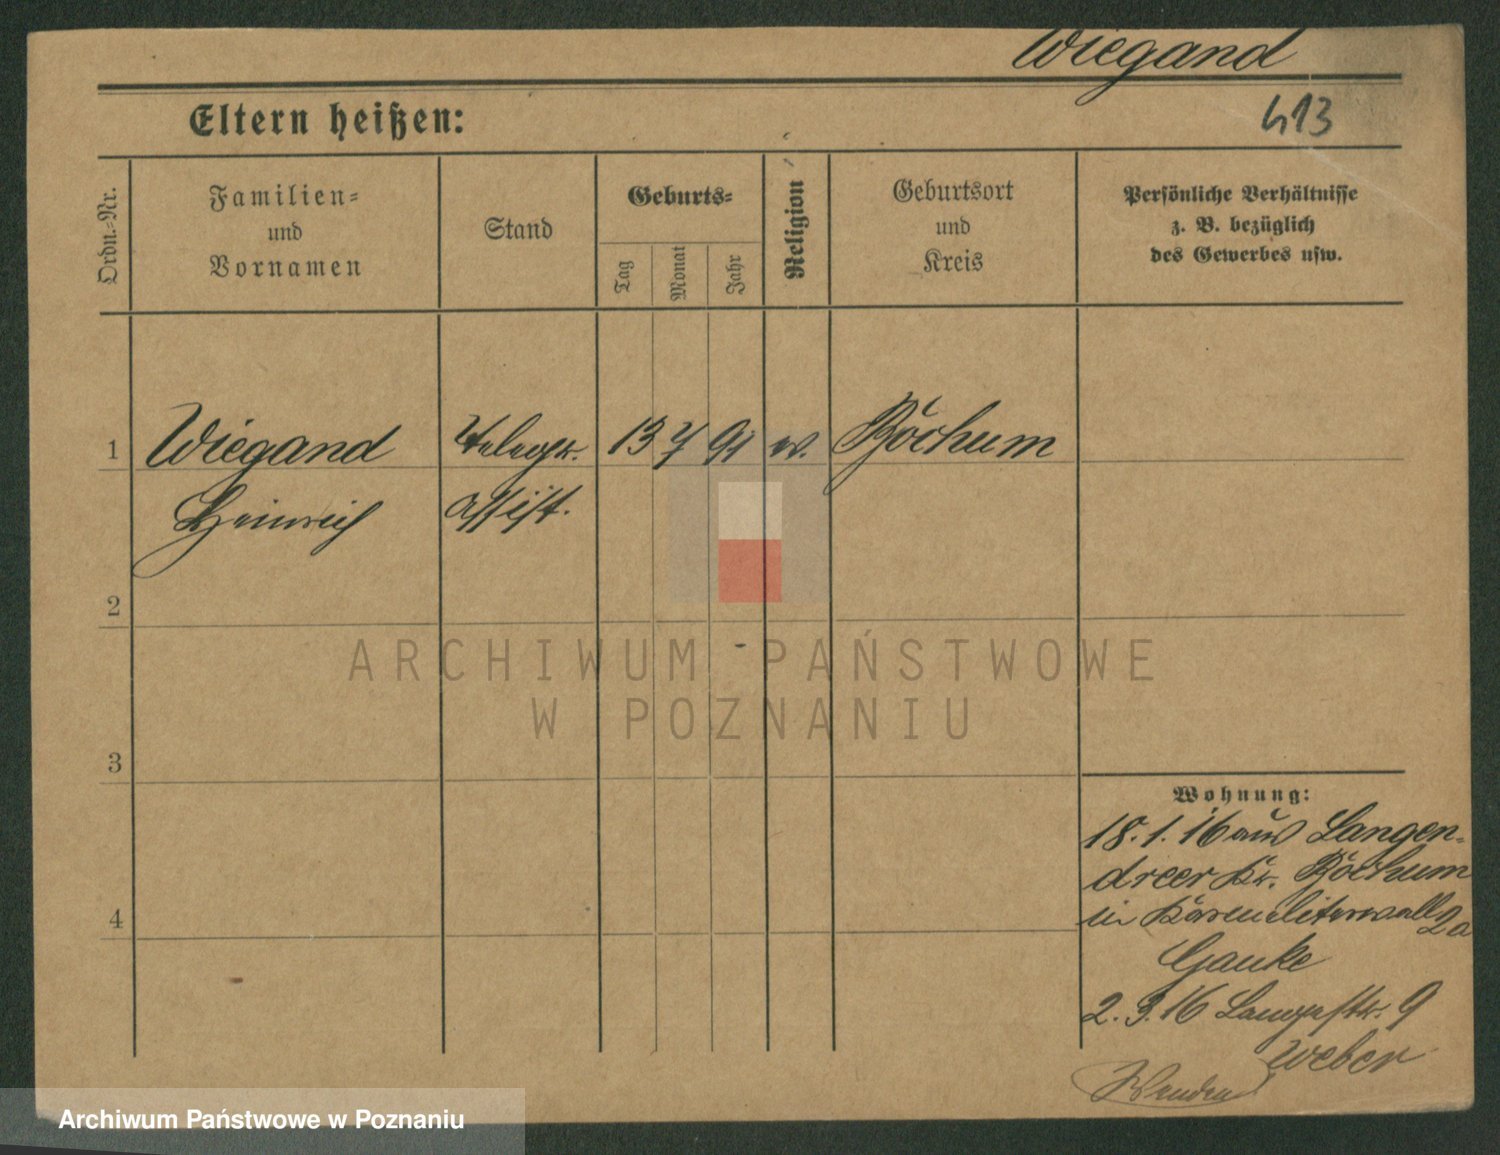 Wiegand
413
Eltern heißen:
Ordn.-Nr.
Familien-
und
Vornamen
Stand
Geburts-
Tag
Monat
Jahr
Religion
Geburtsort
und
Kreis
Persönliche Verhältnisse
z. B. bezüglich
des Gewerbes usw.
1 Wiegand Telegr. 13 7 91 ev. Bochum
Heinrich assist.
2
3
4
Wohnung:
18. 1. 16 aus Langen-
dreer Kr. Bochum
in Karmeliterwall 2a
Gauke
2. 3. 16 Langestr. 9
Weber
ARCHIWUM PAŃSTWOWE
W POZNANIU
Archiwum Państwowe w Poznaniu